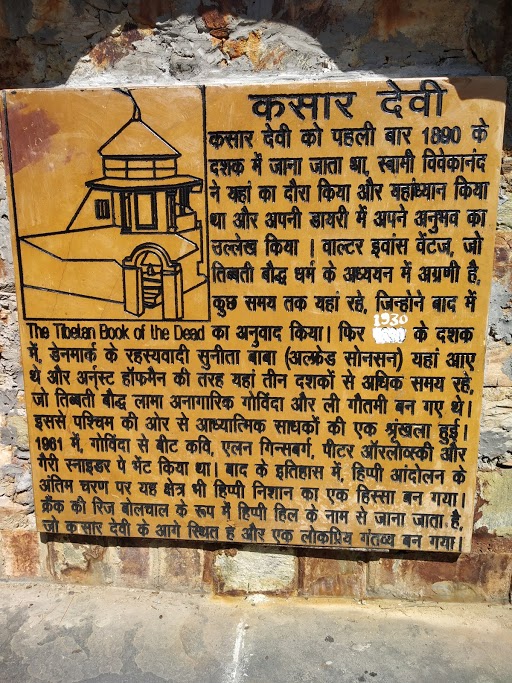 कसार देवी
कसार देवी को पहली बार 1890 के
दशक में जाना जाता था, स्वामी विवेकानंद
ने यहां का दौरा किया और यहांध्यान किया
था और अपनी डायरी में अपने अनुभव का
उल्लेख किया । वाल्टर इवांस वेंटज, जो
तिब्बती बौद्ध धर्म के अध्ययन में अग्रणी है,
कुछ समय तक यहां रहे, जिन्होने बाद में
The Tibetan Book of the Dead का अनुवाद किया। फिर 1930 के दशक
में, डेनमार्क के रहस्यवादी सुनीता बाबा (अल्फ्रेड सोनसन) यहां आए
थे और अर्नस्ट हॉफमैन की तरह यहां तीन दशकों से अधिक समय रहे,
जो तिब्बती बौद्ध लामा अनागारिक गोविंदा और ली गौतमी बन गए थे।
इससे पश्चिम की ओर से आध्यात्मिक साधकों की एक श्रृंखला हुई।
1961 में, गोविंदा से बीट कवि, एलन गिन्सबर्ग, पीटर ऑरलोव्स्की और
गैरी स्नाइडर पे भेंट किया था। बाद के इतिहास में, हिप्पी आंदोलन के
अंतिम चरण पर यह क्षेत्र भी हिप्पी निशान का एक हिस्सा बन गया।
क्रैंक की रिज बोलचाल के रूप में हिप्पी हिल के नाम से जाना जाता है,
जो कसार देवी के आगे स्थित है और एक लोकप्रिय गंतव्य बन गया।